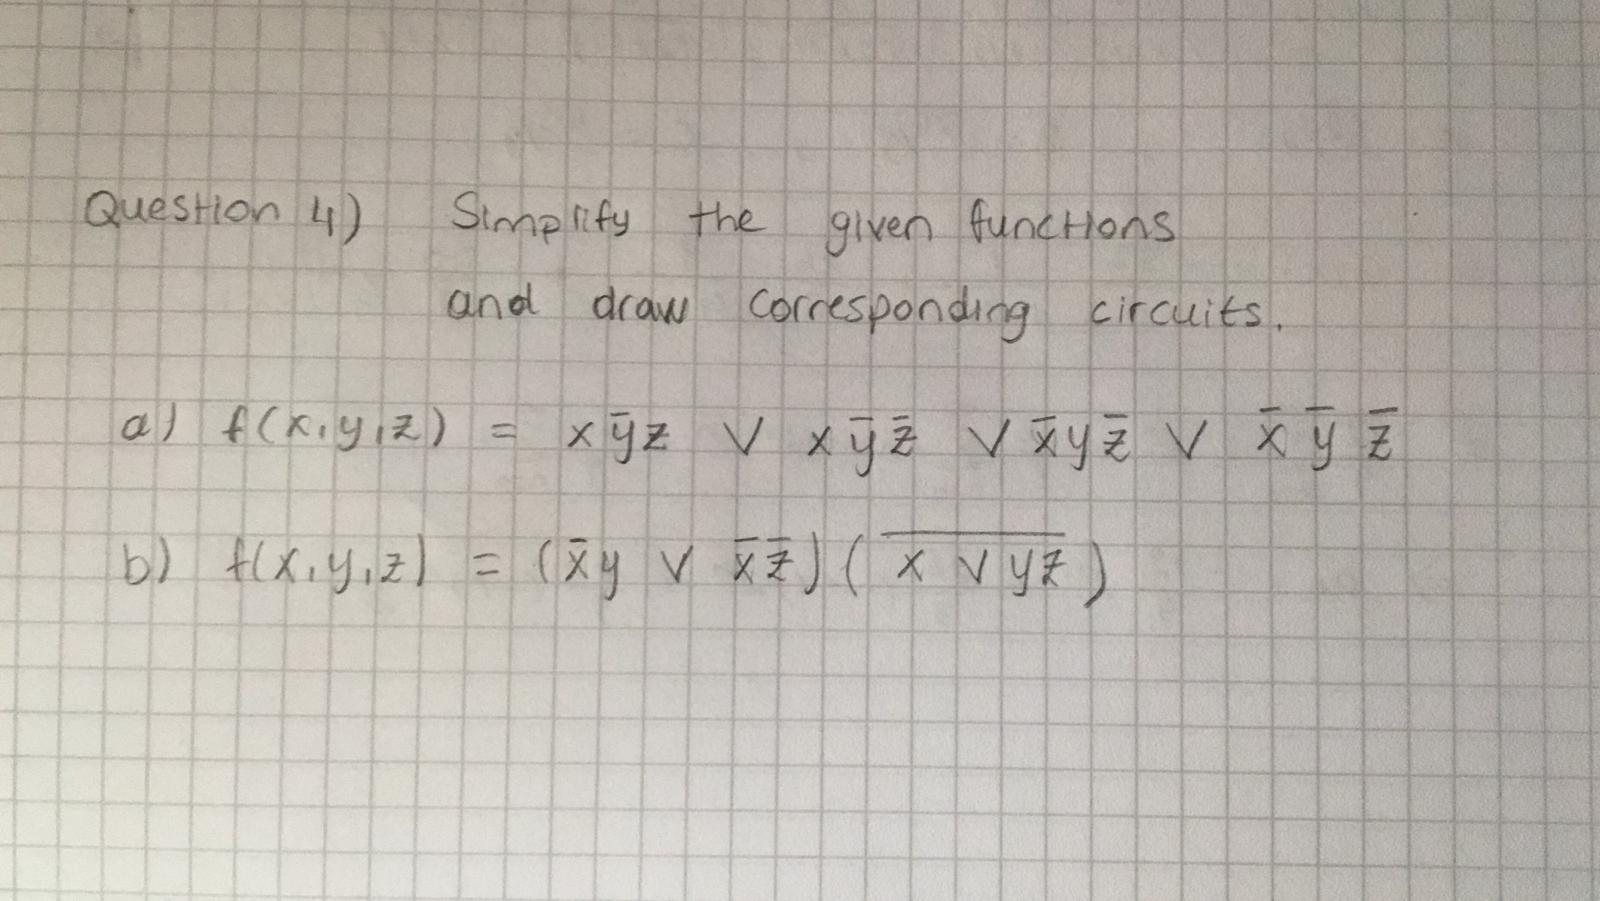 Question 4) Simplify the given functions
and draw corresponding circuits.
a) f(x,y,z) = xy̅z ∨ xy̅z̅ ∨ x̅yz̅ ∨ x̅ y̅ z̅
b) f(x,y,z) = (x̅y ∨ x̅z̅)(x̅ ̅∨̅ ̅y̅z̅)